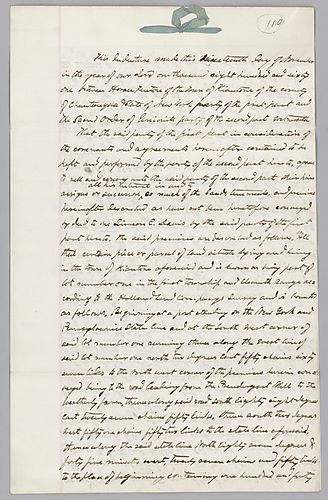 114
This Indenture made this Nineteenth day of November
in the year of our Lord one thousand eight hundred and sixty
one between Horace of the town of Kiantone of the county
of Chautauqua State of New York party of the first part and
the Sacred Order of Unionists party of the second part
That the said party of the first part in consideration of
the covenants and agreements hereinafter contained to be
kept and performed by the party of the second part hereto, agrees
to sell and convey unto the said party of the second part their
all his interest in and to
assigns or successors, so much of the lands, tenements, and premises
hereinafter described as have not been heretofore conveyed
by deed to one by the said party of the first
part hereto. The said premises are described as follows, All
that certain piece or parcel of land situate lying and being
in the town of Kiantone aforesaid and is known as being part of
lot number one in the first township and eleventh range ac
cording to the Holland Land company's Survey and is bounded
as follows, Beginning at a post standing on the New York and
Pennsylvania State line and at the South West corner of
said lot number one running thence along the west line of
said lot number one north two degrees east fifty chains sixty
seven links to the north west corner of the premises herein con
veyed being to the road leading from the Prendergast Mill to the
thence along said road south eighty eight degrees
east twenty seven chains fifty links, thence south two degrees
west fifty one chains fifty two links to the state line aforesaid
thence along the said state line North Eighty seven degrees &
forty five minutes west, twenty seven chains and fifty links
to the place of beginning containing one hundred and forty